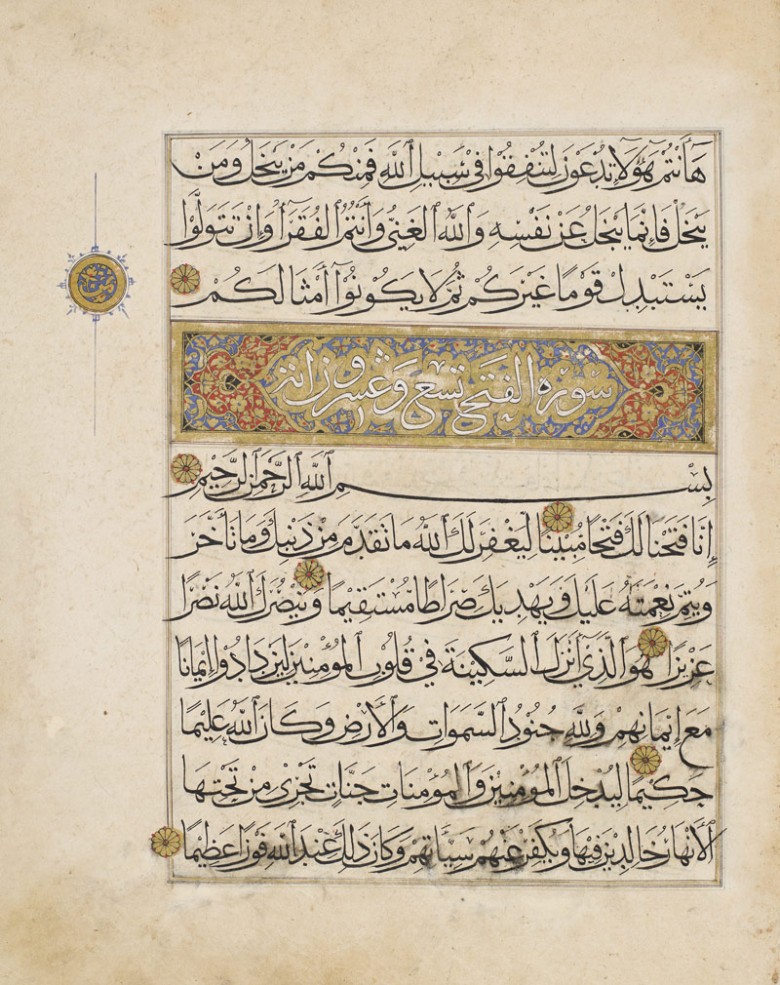 هَا أَنْتُمْ هَؤُلَاءِ تُدْعَوْنَ لِتُنْفِقُوا فِي سَبِيلِ اللَّهِ فَمِنْكُمْ مَنْ يَبْخَلُ وَمَنْ
يَبْخَلْ فَإِنَّمَا يَبْخَلُ عَنْ نَفْسِهِ وَاللَّهُ الْغَنِيُّ وَأَنْتُمُ الْفُقَرَاءُ وَإِنْ تَتَوَلَّوْا
يَسْتَبْدِلْ قَوْمًا غَيْرَكُمْ ثُمَّ لَا يَكُونُوا أَمْثَالَكُمْ
سورة الفتح تسع وعشرون اية
بِسْمِ اللَّهِ الرَّحْمَنِ الرَّحِيمِ
إِنَّا فَتَحْنَا لَكَ فَتْحًا مُبِينًا لِيَغْفِرَ لَكَ اللَّهُ مَا تَقَدَّمَ مِنْ ذَنْبِكَ وَمَا تَأَخَّرَ
وَيُتِمَّ نِعْمَتَهُ عَلَيْكَ وَيَهْدِيَكَ صِرَاطًا مُسْتَقِيمًا وَيَنْصُرَكَ اللَّهُ نَصْرًا
عَزِيزًا هُوَ الَّذِي أَنْزَلَ السَّكِينَةَ فِي قُلُوبِ الْمُؤْمِنِينَ لِيَزْدَادُوا إِيمَانًا
مَعَ إِيمَانِهِمْ وَلِلَّهِ جُنُودُ السَّمَوَاتِ وَالْأَرْضِ وَكَانَ اللَّهُ عَلِيمًا
حَكِيمًا لِيُدْخِلَ الْمُؤْمِنِينَ وَالْمُؤْمِنَاتِ جَنَّاتٍ تَجْرِي مِنْ تَحْتِهَا
الْأَنْهَارُ خَالِدِينَ فِيهَا وَيُكَفِّرَ عَنْهُمْ سَيِّئَاتِهِمْ وَكَانَ ذَلِكَ عِنْدَ اللَّهِ فَوْزًا عَظِيمًا